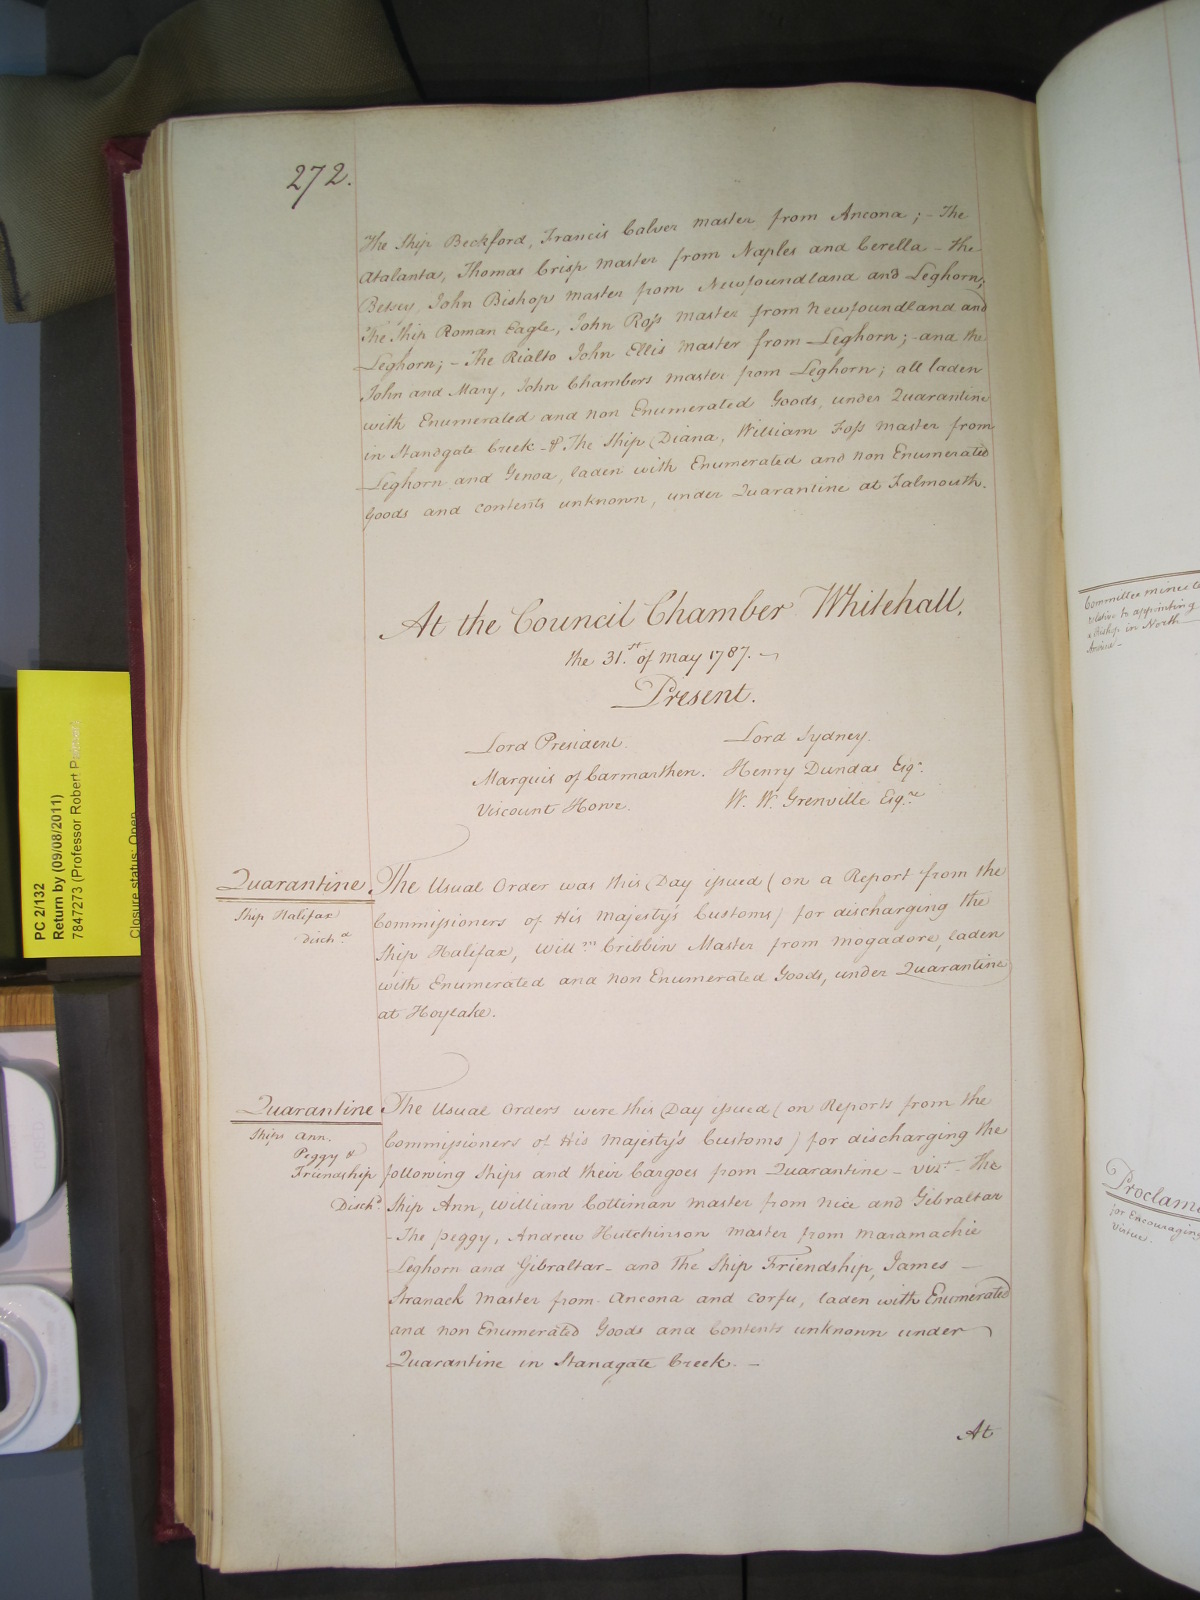 272.
The Ship Beckford, Francis Calver master from Ancona; - The
Atalanta, Thomas Crisp master from Naples and Cerella - the
Betsey, John Bishop master from Newfoundland and Leghorn;
The Ship Roman Eagle, John Ross master from Newfoundland and
Leghorn; - The Rialto John Ellis master from Leghorn; - and the
John and Mary, John Chambers master from Leghorn; all laden
with Enumerated and non Enumerated Goods, under Quarantine
in Standgate Creek - & The Ship Diana, William Foss master from
Leghorn and Genoa, laden with Enumerated and non Enumerated
Goods and contents unknown, under Quarantine at Falmouth.
At the Council Chamber Whitehall,
the 31.st of May 1787. -
Present.
Lord President. Lord Sydney.
Marquis of Carmarthen. Henry Dundas Esqr.
Viscount Howe. W. W. Grenville Esq.re
Quarantine
Ship Halifax
Disch.d
The Usual Order was this Day issued (on a Report from the
Commissioners of His Majesty's Customs) for discharging the
Ship Halifax, Will.m Cribbin Master from Mogadore, laden
with Enumerated and non Enumerated Goods, under Quarantine
at Hoylake.
Quarantine
Ships Ann.
Peggy &
Friendship
Disch.d
The Usual Orders were this Day issued (on Reports from the
Commissioners of His Majesty's Customs) for discharging the
following Ships and their Cargoes from Quarantine - vizt. The
Ship Ann, William Colliman master from Nice and Gibraltar
- The Peggy, Andrew Hutchinson master from Maramachie
Leghorn and Gibraltar - and The Ship Friendship, James -
Stranack Master from Ancona and Corfu, laden with Enumerated
and non Enumerated Goods and Contents unknown under
Quarantine in Standgate Creek. -
At
PC 2/132
Return by (09/08/2011)
7847273 (Professor Robert
Closure status: Open
Committee minute
relative to appointing
Bishop in North
Proclama
for Encouraging
Virtue.